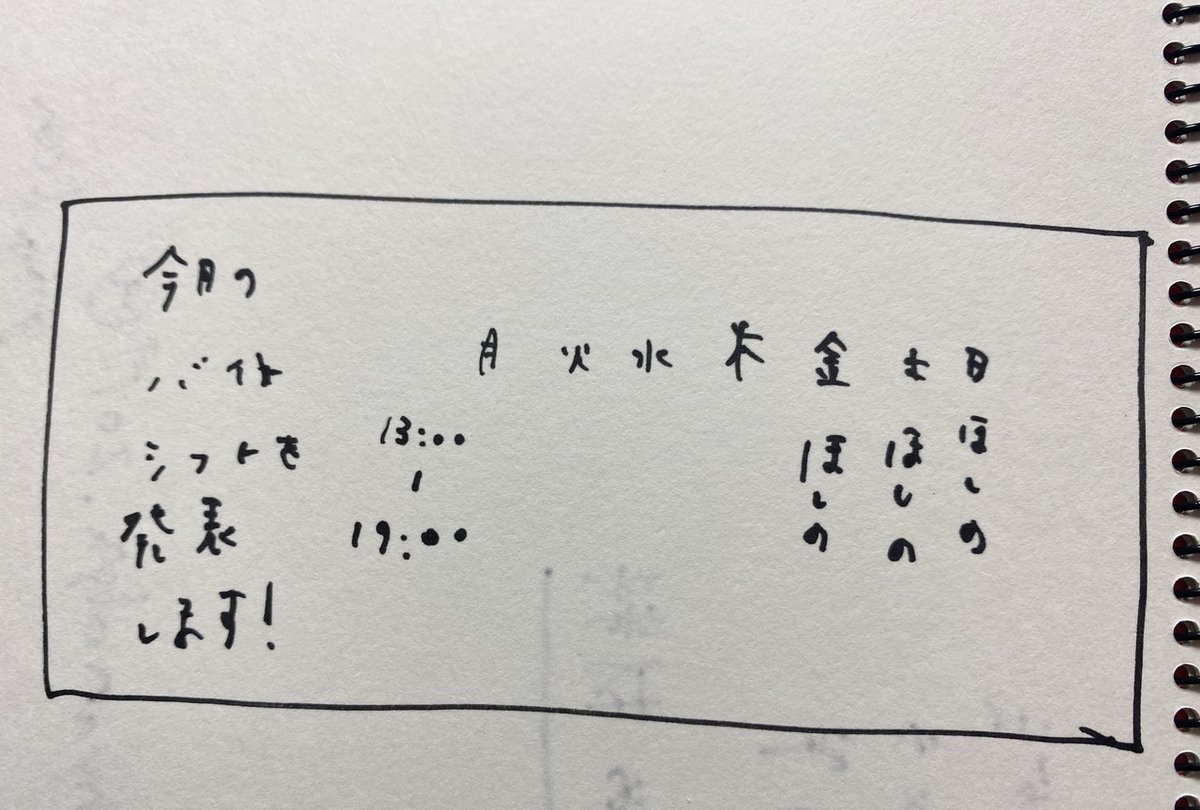 今月の
バイト
シフトを
発表
します!
月 火 水 木 金 土 日
13:00
19:00
ほしの
ほしの
ほしの